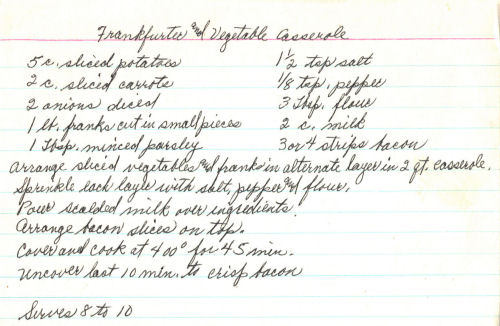 Frankfurter and Vegetable Casserole
5 c. sliced potatoes
2 c. sliced carrots
2 onions diced
1 lb. franks cut in small pieces
1 Tbsp. minced parsley
1 1/2 tsp salt
1/8 tsp. pepper
3 Tbsp. flour
2 c. milk
3 or 4 strips bacon
Arrange sliced vegetables and franks in alternate layer in 2 qt. casserole.
Sprinkle each layer with salt, pepper and flour.
Pour scalded milk over ingredients.
Arrange bacon slices on top.
Cover and cook at 400° for 45 min.
Uncover last 10 min. to crisp bacon
Serves 8 to 10